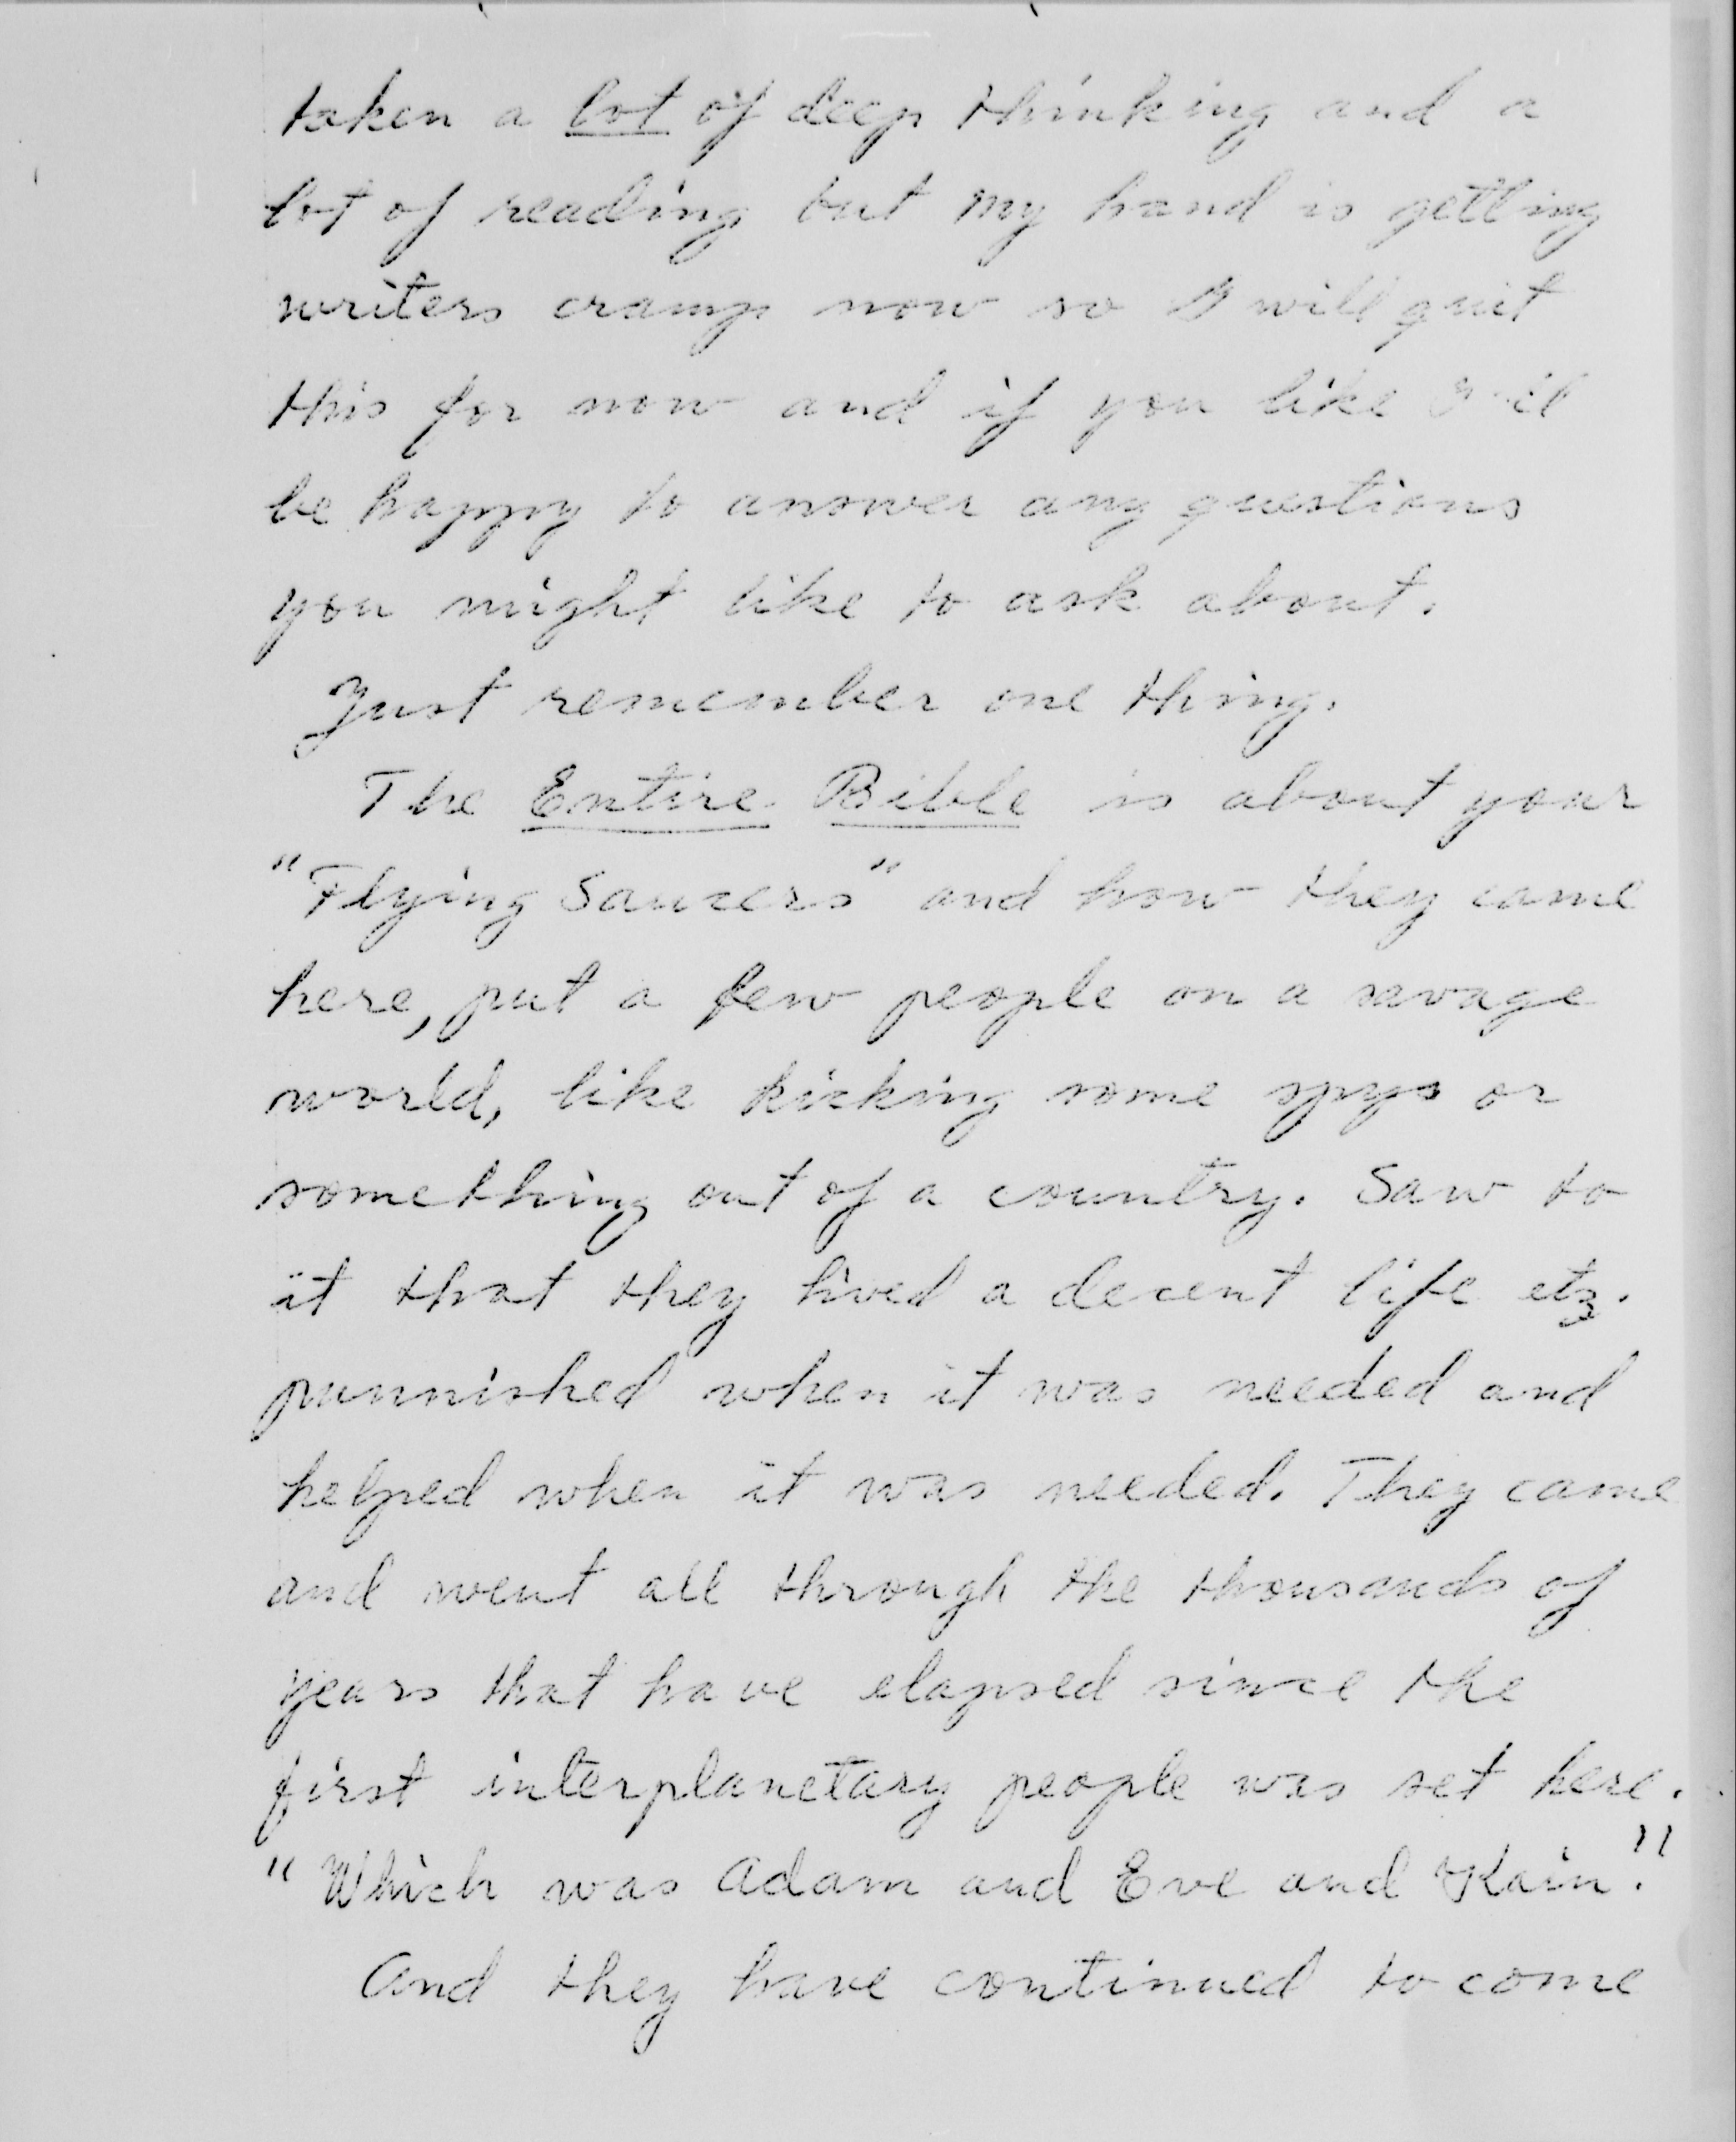 taken a lot of deep thinking and a
lot of reading but my hand is getting
writers cramp now so I will quit
this for now and if you like I
be happy to answer any questions
you might like to ask about.
Just remember one thing.
The Entire Bible is about your
"Flying Saucers" and how they came
here, put a few people on a savage
world, like kicking some spys or
something out of a country. Saw to
it that they lived a decent life etz.
punnished when it was needed and
helped when it was needed. They came
and went all through the thousands of
years that have elapsed since the
first interplanetary people was set here.
"Which was Adam and Eve and Kain."
And they have continued to come